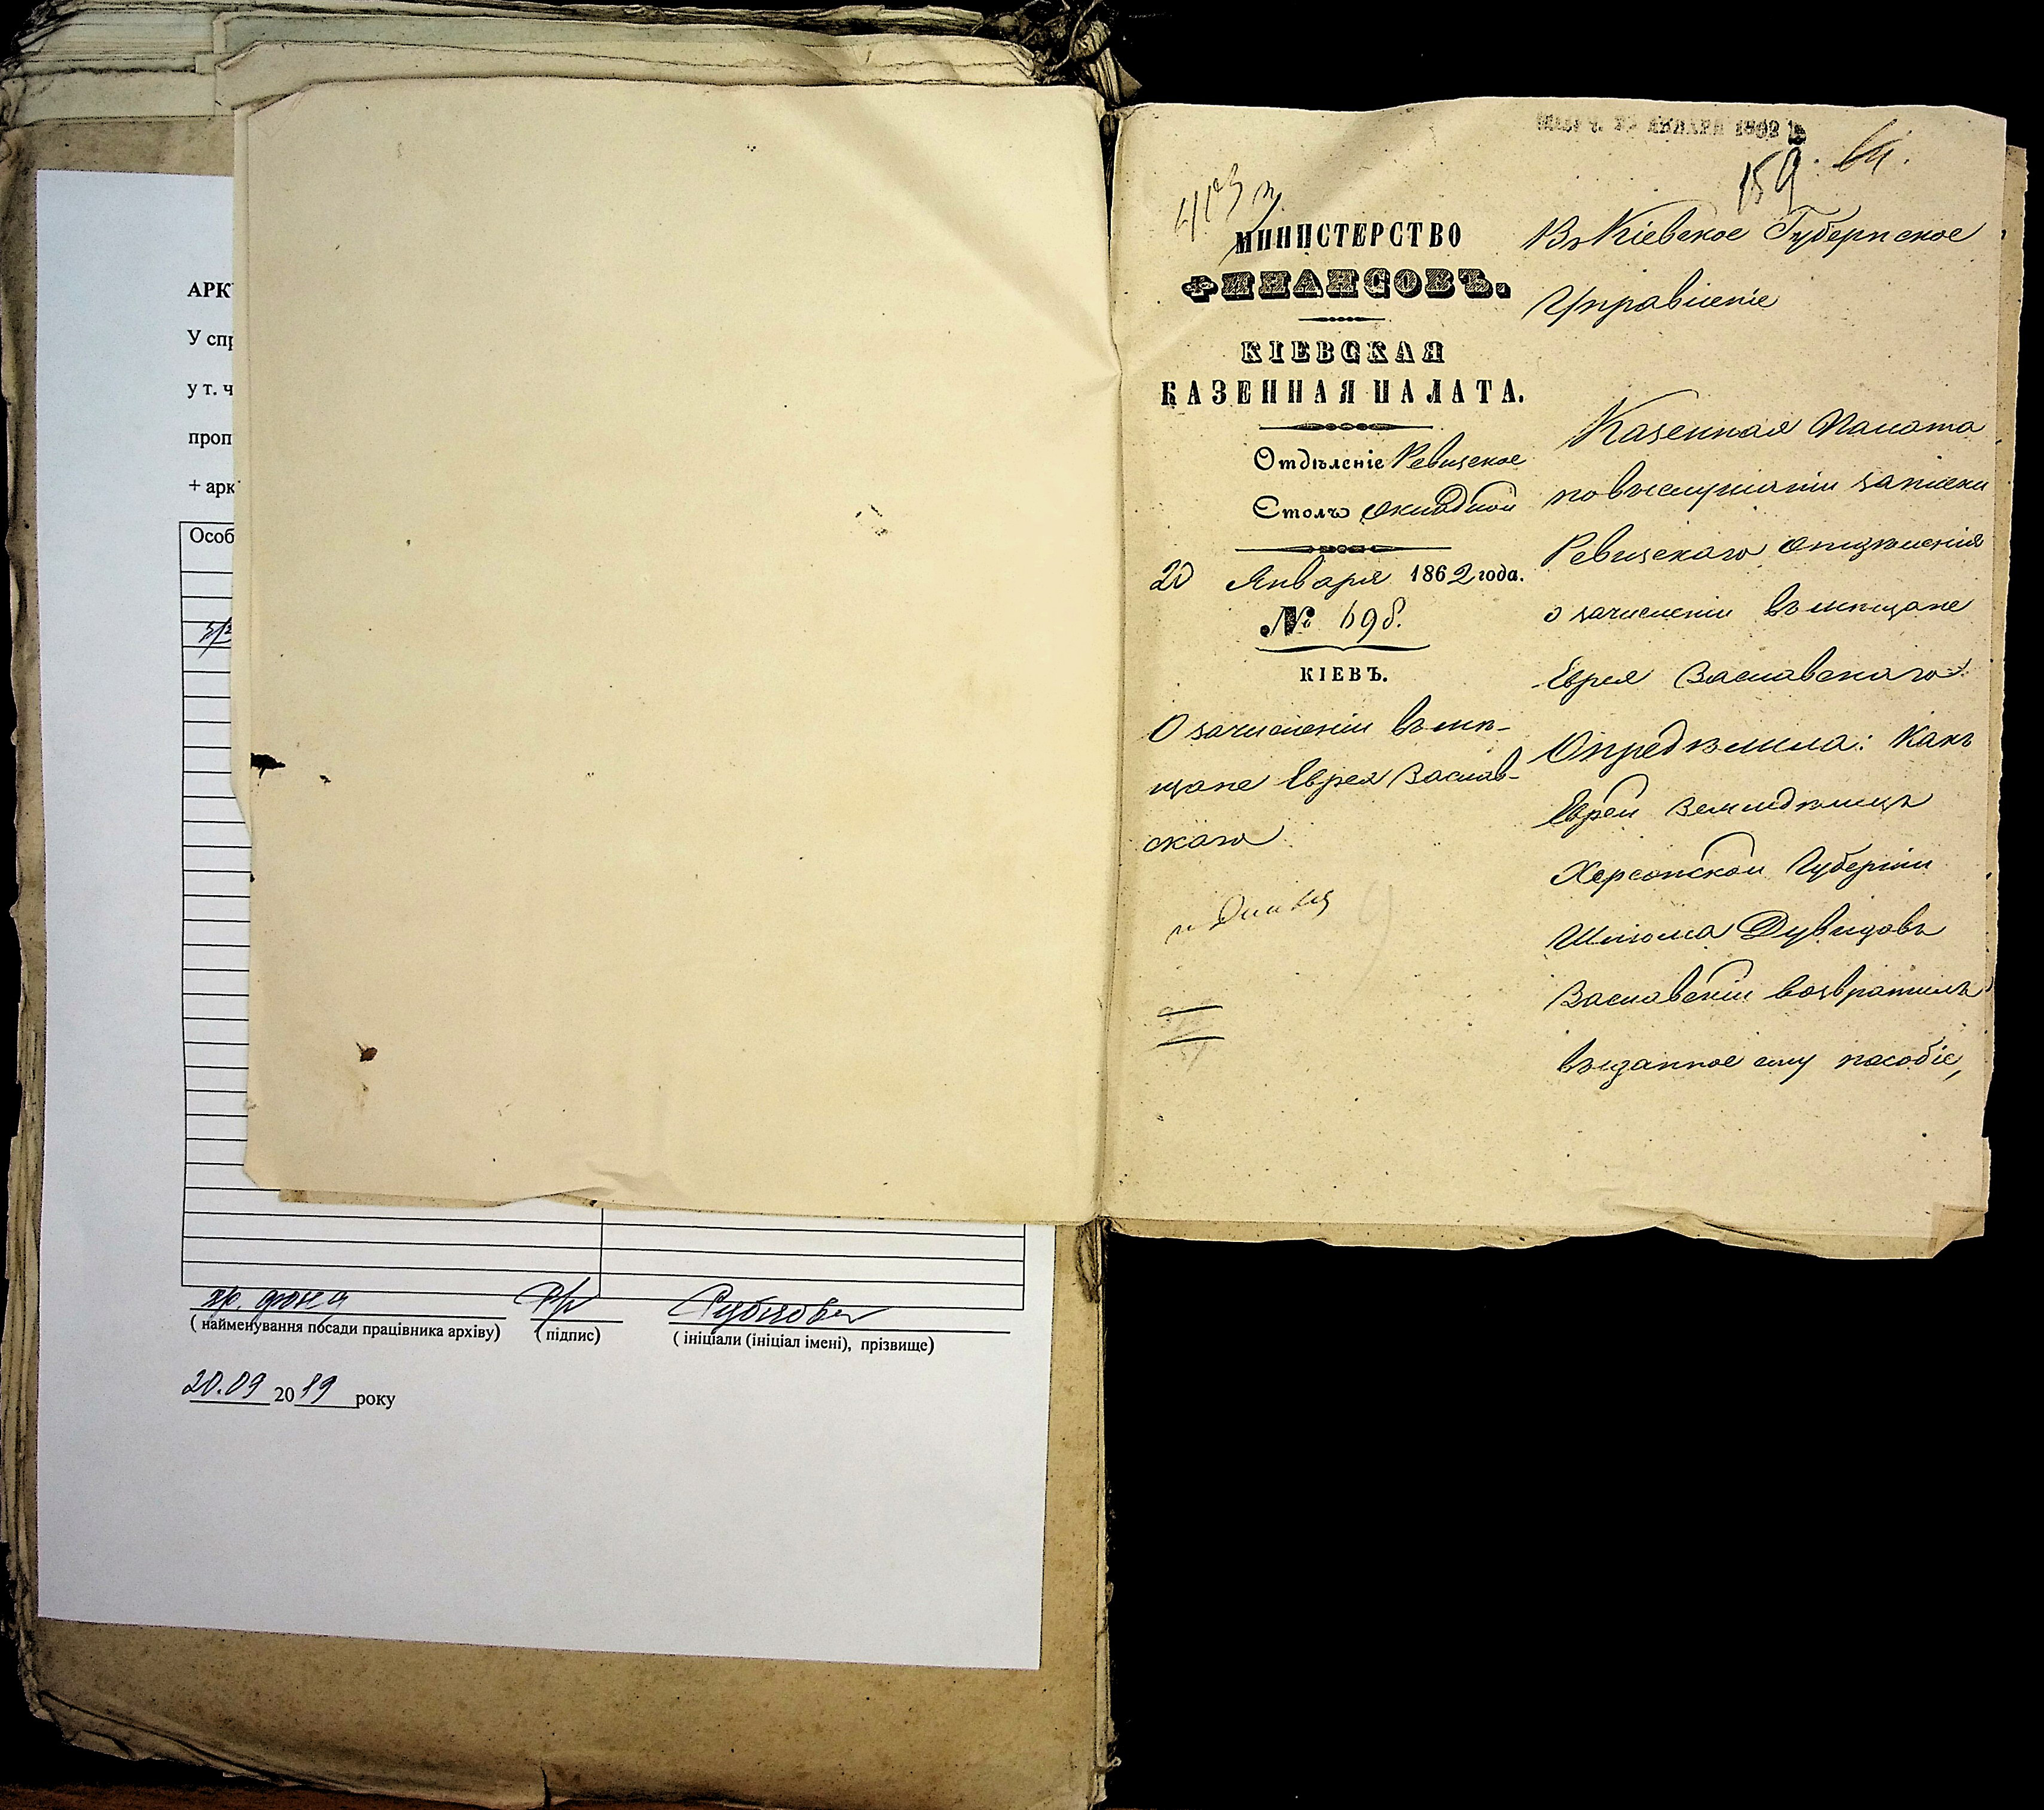 АРК
У спр
у т. ч
проп
+ арк
Особ
(найменування посади працівника архіву)
(підпис)
(ініціали (ініціал імені), прізвище)
20.09 2019 року
ЯНВАРЯ 1862
159.
МИНИСТЕРСТВО
ФИНАНСОВЪ.
КІЕВСКАЯ
КАЗЕННАЯ ПАЛАТА.
Отдѣленіе Ревизское
Столъ окладной
20 Января 1862 года.
№ 698.
КІЕВЪ.
О зачисленіи въ мѣ-
щане Еврея Заслав-
скаго
Въ Кіевское Губернское
Управленіе
Казенная Палата
по выслушаніи записки
Ревизскаго отдѣленія
о зачисленіи въ мѣщане
Еврея Заславскаго
Опредѣлила: Какъ
Еврей Земледѣлецъ
Херсонской Губерніи
Шлиома Дувидовъ
Заславскій возвратилъ
выданное ему пособіе,